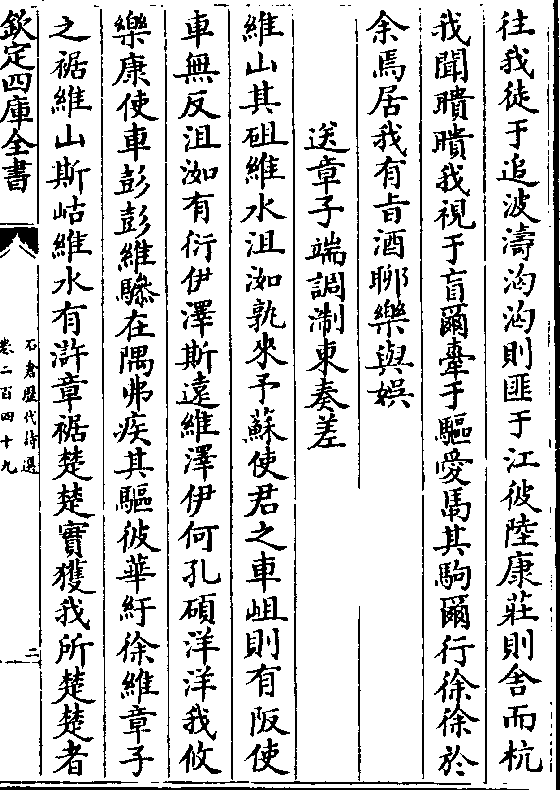 往我徒于追波濤洶洶則匪于江彼陸康莊則舍而杭
我聞瞶瞶我視于盲爾牽于驅愛馬其駒爾行徐徐於
余焉居我有旨酒聊樂與娯
送章子端調淛東奏差
維山其砠維水沮洳孰來予蘇使君之車岨則有阪使
車無反沮洳有衍伊澤斯遠維澤伊何孔碩洋洋我攸
樂康使車彭彭維驂在隅弗疾其驅彼華紆徐維章子
之裾維山斯岵維水有滸章裾楚楚實獲我所楚楚者
欽定四庫全書
石倉歷代詩選
卷二百四十九
二